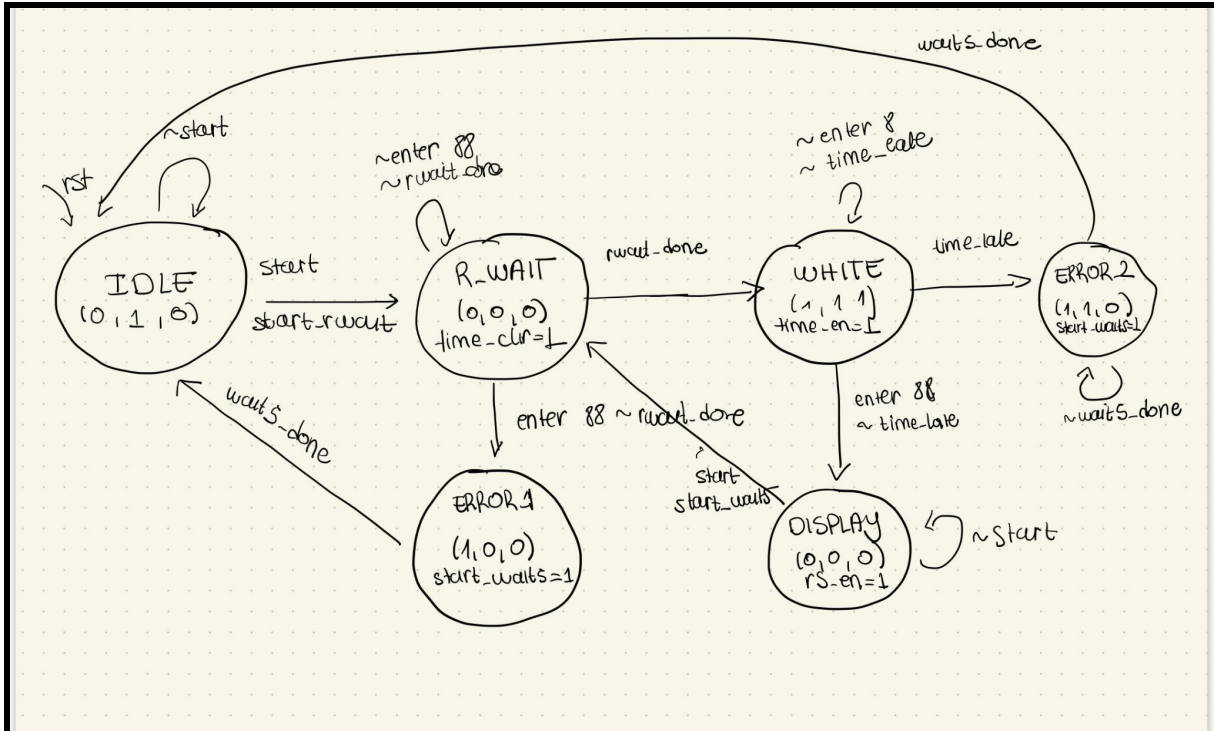 wait5_done
~start
rst
~enter 88
~rwait_dno
~enter 8
~ time_late
IDLE
(0,1,0)
start
start_rwait
R_WAIT
(0,0,0)
time_clr=1
rwait_done
WHITE
(1,1 1)
time_en=1
time_late
ERROR_2
(1,1,0)
start_wait5=1
~wait5_done
wait5_done
enter 88 ~ rwait_done
enter 88
~ time_late
start
start_wait5
ERROR1
(1,0,0)
start_wait5=1
DISPLAY
(0,0,0)
rs_en=1
~start